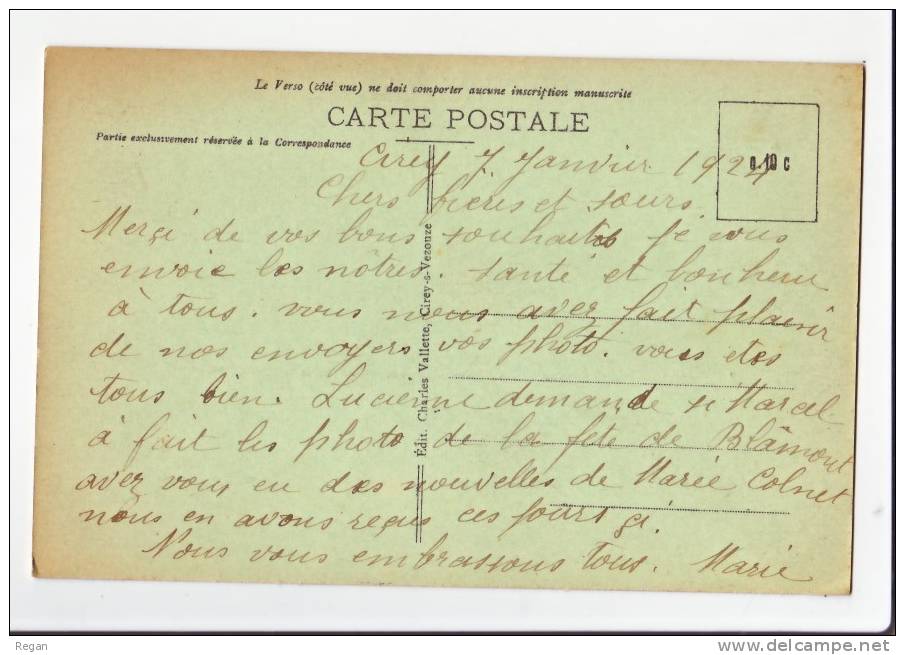 Le Verso (côté vue) ne doit comporter aucune inscription manuscrite
CARTE POSTALE
Partie exclusivement réservée à la Correspondance
0.10 c
Cirey 7 Janvier 1924
Chers frères et sœurs
Merçi de vos bons souhaits je vous
envoie les nôtres. santé et bonheur
à tous. vous nous avez fait plaisir
de nos envoyers vos photo. vous etes
tous bien. Lucienne demande si Marcel
à fait les photo de la fête de Blâmont
avez vous eu des nouvelles de Marie Colnet
nous en avons reçus ces jours çi.
Nous vous embrassons tous. Marie
Édit. Charles Vallette, Cirey-s-Vezouze
Regan
www.delcampe.net